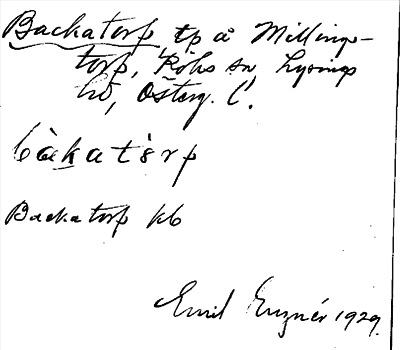 Backatorp, tp å Millings-
torp, Röks sn, Lysings
hd, Österg. l.
bàkatàrp
Backatorp kb
Emil Enznér 1929.